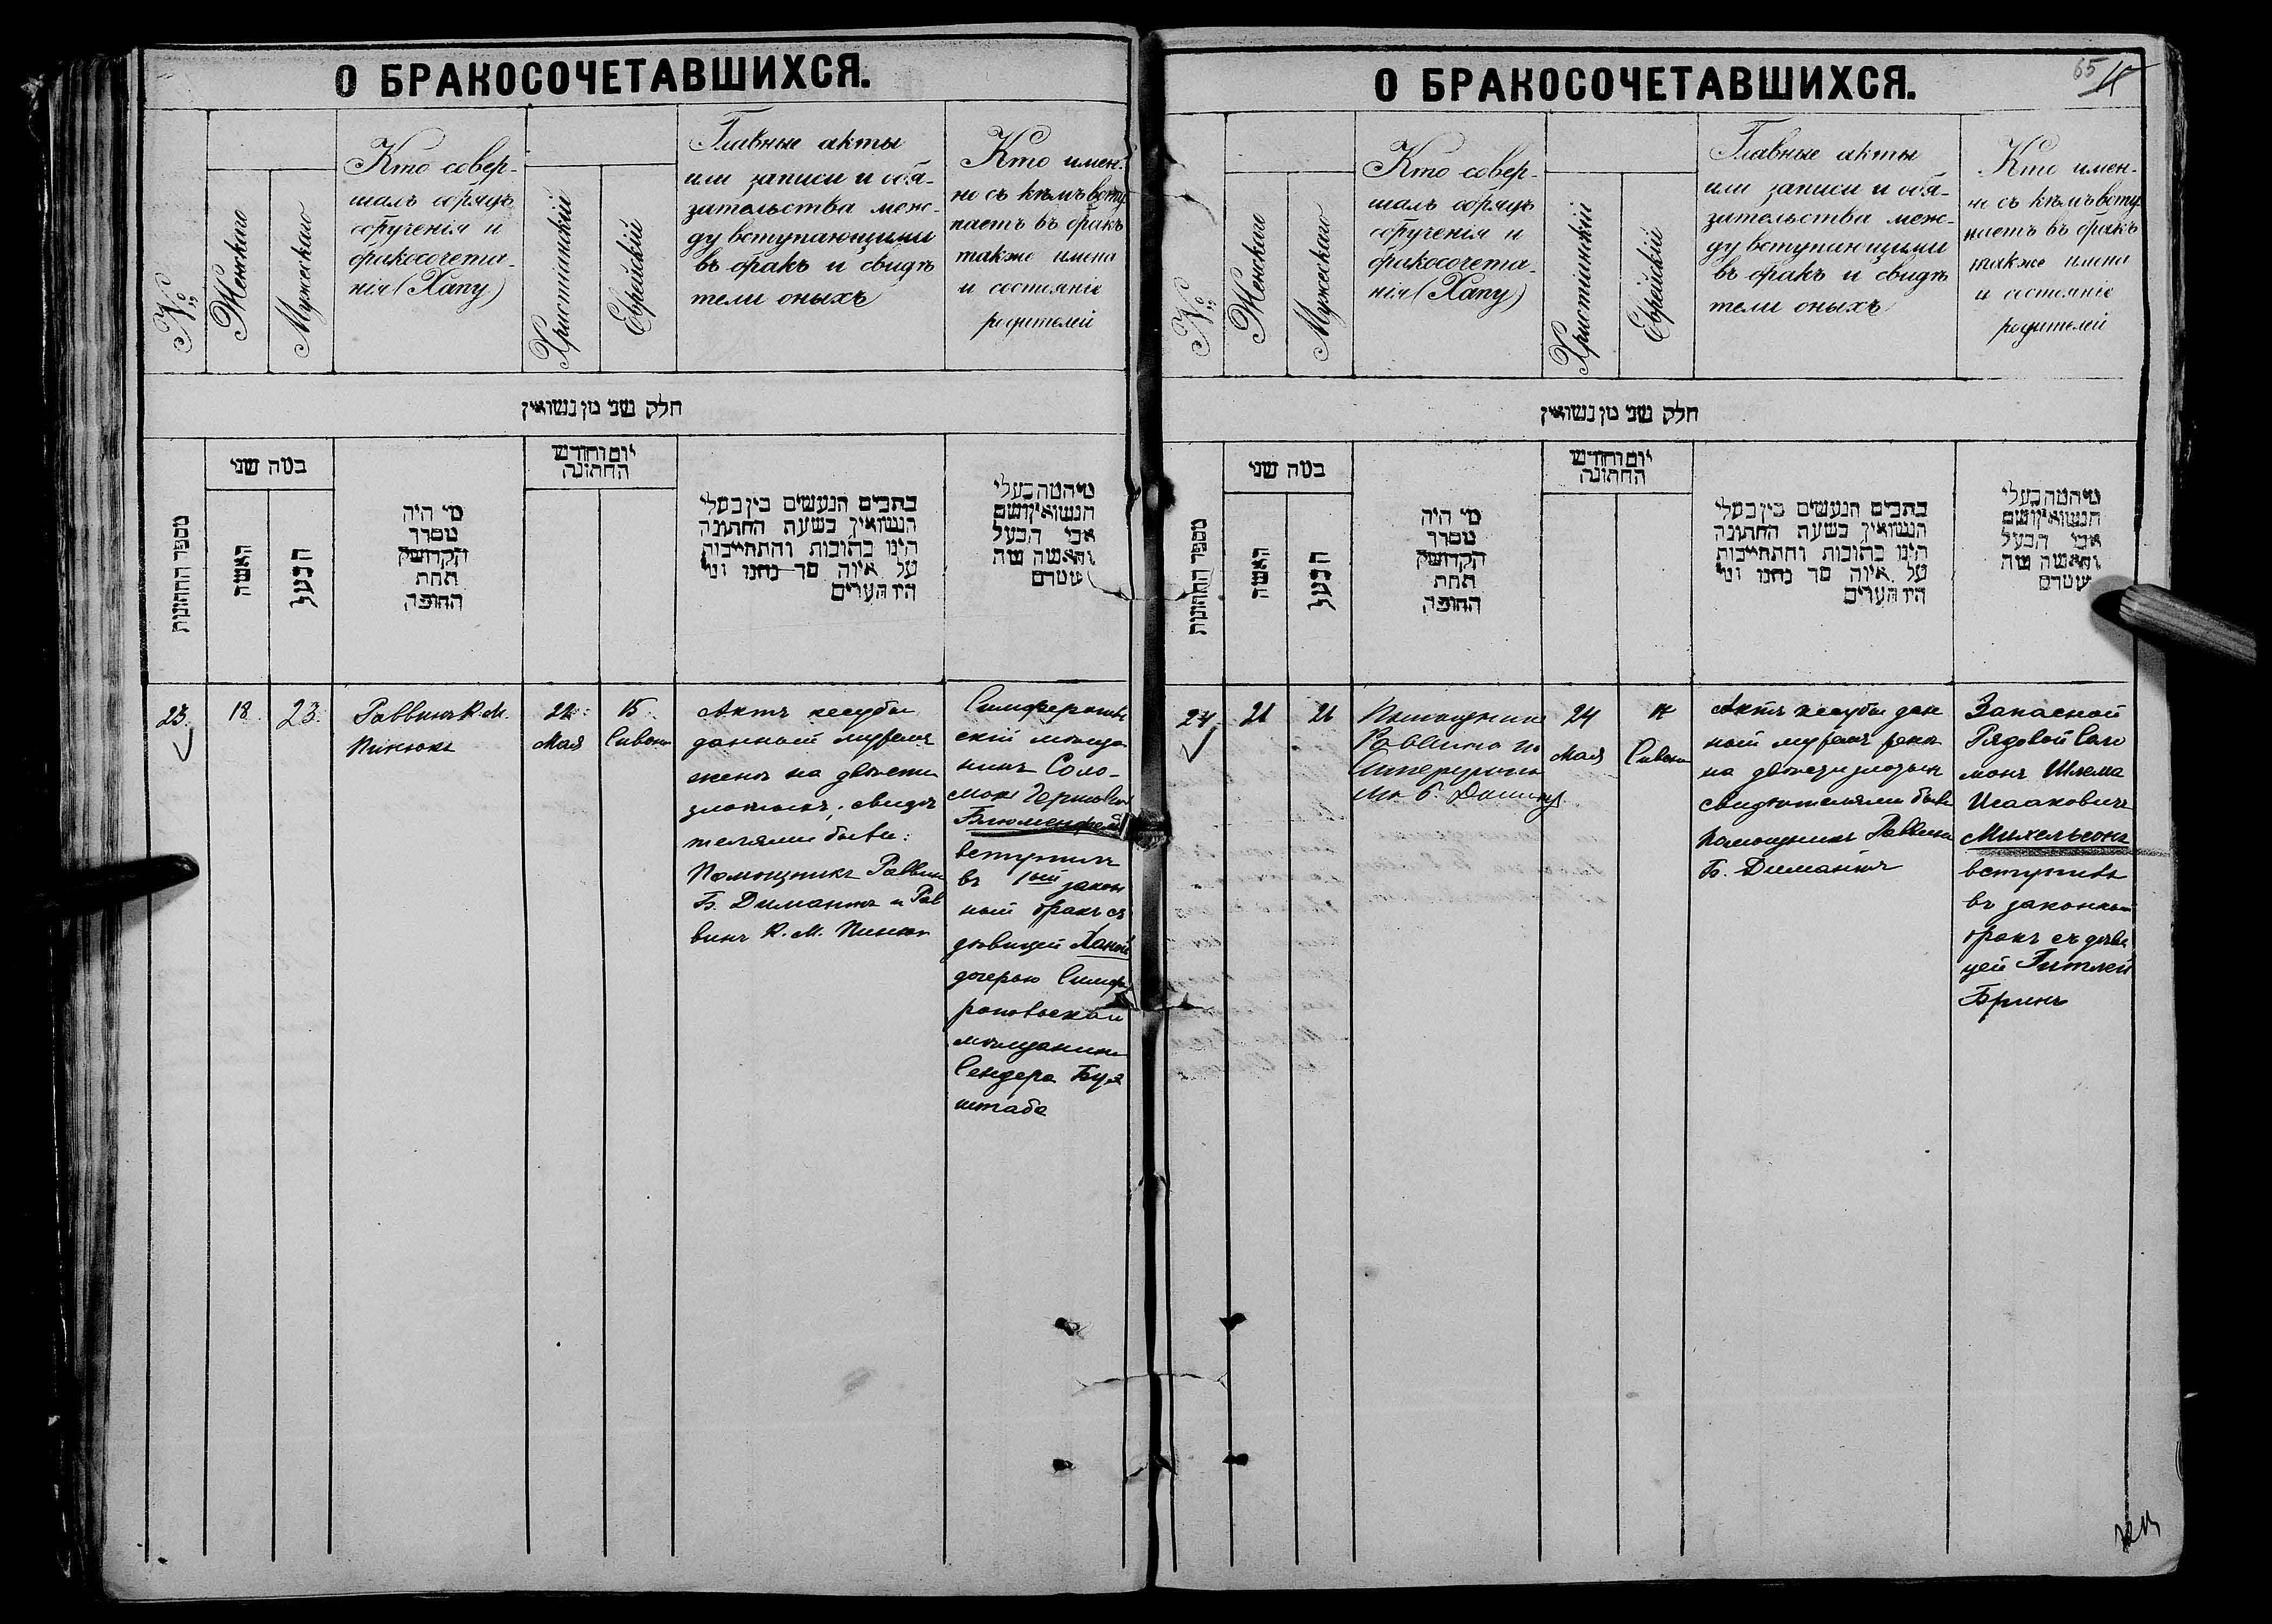 О БРАКОСОЧЕТАВШИХСЯ.
№
Женскаго
Мужескаго
Кто совер-
шалъ обрядъ
обрученія и
бракосочета-
нія (Хапу)
Христіанскій
Еврейскій
Главные акты
или записи и обя-
зательства меж-
ду вступающими
въ бракъ и свидѣ
тели оныхъ
Кто имен-
но съ кѣмъ всту
паетъ въ бракъ
также имена
и состояніе
родителей
חלק שני מן נשואין
מספר החתונות
כמה שני
האשה
הבעל
מי היה
מסדר
הקדושין
תחת
החופה
יום וחודש
החתונה
כתבים הנעשים בין בעלי
הנשואין בשעת החתונה
היינו כתובות והתחייבות
על איזה סך
היו העדים
הנשואין ושם
אבי הבעל
והאשה
23.
18.
23.
Раввинъ К. М.
Пинюкъ
22
Мая
15
Сивона
Актъ кесубы
данный мужемъ
женѣ на двѣсти
злотыхъ, свидѣ
телями были:
Помощникъ Раввина
Б. Димантъ и Рав
винъ К. М. Пинюкъ
Симферополь
скій мѣща
нинъ Соло-
монъ
Блюменфельд
вступилъ
въ 1ый закон
ный бракъ съ
дѣвицей Ханой
дочерью Симфе
ропольскаго
мѣщанина
Сендера Бух
штаба
О БРАКОСОЧЕТАВШИХСЯ.
65
№
Женскаго
Мужескаго
Кто совер-
шалъ обрядъ
обрученія и
бракосочета-
нія (Хапу)
Христіанскій
Еврейскій
Главные акты
или записи и обя-
зательства меж-
ду вступающими
въ бракъ и свидѣ
тели оныхъ
Кто имен-
но съ кѣмъ всту
паетъ въ бракъ
также имена
и состояніе
родителей
חלק שני מן נשואין
מספר החתונות
כמה שני
האשה
הבעל
מי היה
מסדר
הקדושין
תחת
החופה
יום וחודש
החתונה
כתבים הנעשים בין בעלי
הנשואין בשעת החתונה
היינו כתובות והתחייבות
על איזה סך
היו העדים
הנשואין ושם
אבי הבעל
והאשה
24
Помощникъ
Раввина
Б.
24
Мая
Сивона
Актъ кесубы дан
ный мужемъ женѣ
на двѣсти злотыхъ
свидѣтелями были
помощникъ Раввина
Б. Димантъ
Запасной
Рядовой Соло
монъ Шлема
Исааковичъ
Михельсонъ
вступилъ
въ законный
бракъ съ дѣви
цей Гитлей
Бринъ